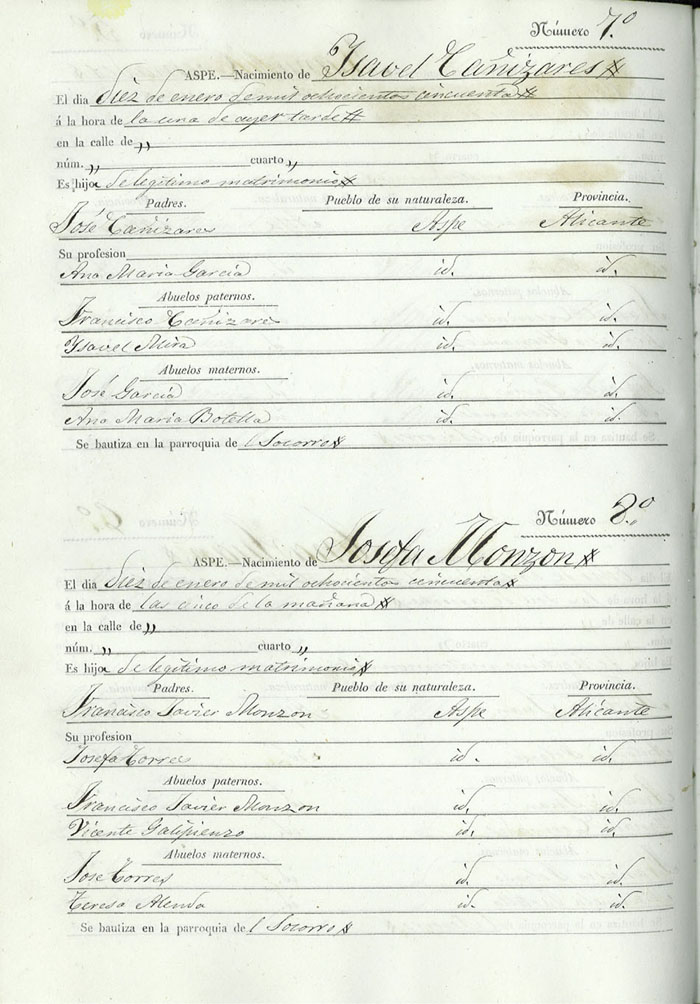 Número 7.º
ASPE.—Nacimiento de Ysavel Cañizares
El dia diez de enero de mil ochocientos cincuenta
á la hora de la una de ayer tarde
en la calle de „
núm. „ cuarto „
Es hija de legitimo matrimonio
Padres. Pueblo de su naturaleza. Provincia.
José Cañizares Aspe Alicante
Su profesion
Ana Maria Garcia id. id.
Abuelos paternos.
Francisco Cañizares id. id.
Ysavel Mira id. id.
Abuelos maternos.
José Garcia id. id.
Ana Maria Botella id. id.
Se bautiza en la parroquia de l Socorro
Número 8.º
ASPE.—Nacimiento de Josefa Monzon
El dia diez de enero de mil ochocientos cincuenta
á la hora de las cinco de la mañana
en la calle de „
núm. „ cuarto „
Es hija de legitimo matrimonio
Padres. Pueblo de su naturaleza. Provincia.
Francisco Javier Monzon Aspe Alicante
Su profesion
Josefa Torres id. id.
Abuelos paternos.
Francisco Javier Monzon id. id.
Vicenta Galipienzo id. id.
Abuelos maternos.
Jose Torres id. id.
Teresa Alenda id. id.
Se bautiza en la parroquia de l Socorro